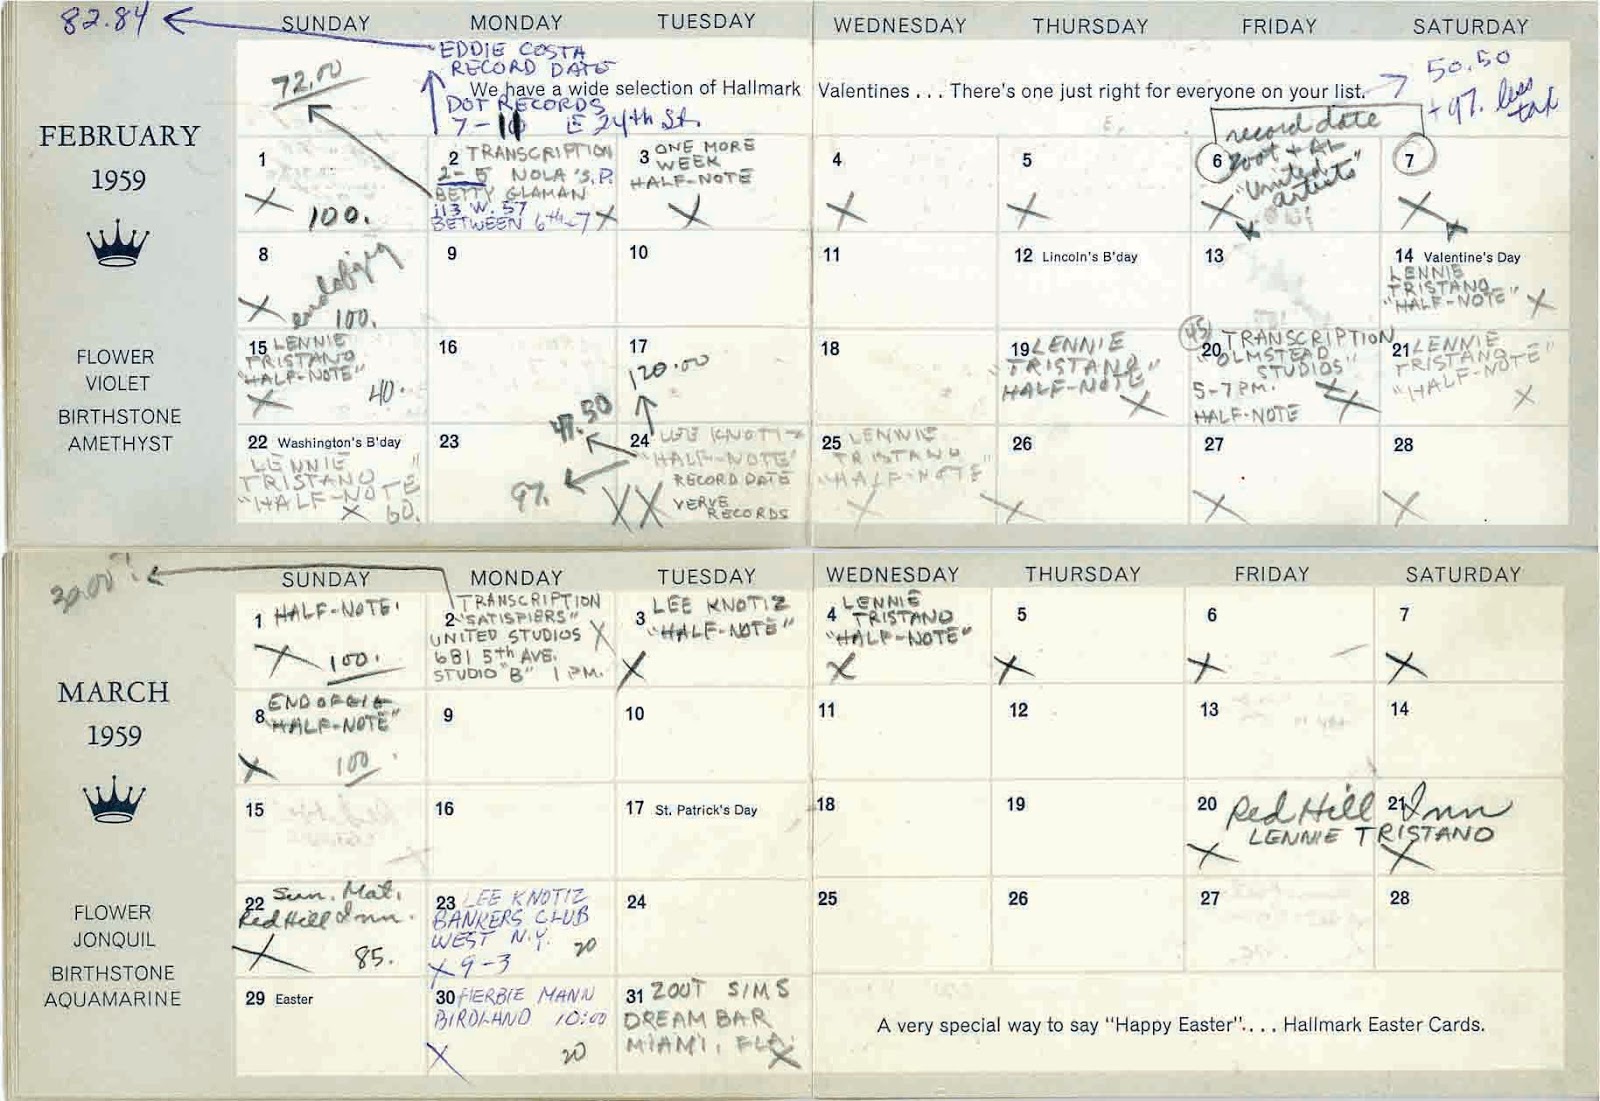 82.84
SUNDAY MONDAY TUESDAY WEDNESDAY THURSDAY FRIDAY SATURDAY
EDDIE COSTA
RECORD DATE
72.00
We have a wide selection of Hallmark Valentines . . . There's one just right for everyone on your list.
50.50
+ 97. less
tax
DOT RECORDS
7-10 E 24th St.
FEBRUARY
1959
1
X 100.
2 TRANSCRIPTION
2-5 NOLA'S. P.
BETTY GLAMAN
113 W. 57
BETWEEN 6th-7 X
3 ONE MORE
WEEK
HALF-NOTE
X
4
X
5
X
record date
6 Zoot + AL
"United
artists"
X
7
X
8
end of gig
X 100.
9
10
11
12 Lincoln's B'day
13
14 Valentine's Day
LENNIE
TRISTANO
"HALF-NOTE" X
FLOWER
VIOLET
BIRTHSTONE
AMETHYST
15 LENNIE
TRISTANO
"HALF-NOTE"
X 40.
16
17
120.00
18
19 LENNIE
TRISTANO
HALF-NOTE
X
45
20 TRANSCRIPTION
"OLMSTEAD
STUDIOS"
5-7 PM.
HALF-NOTE X
21 LENNIE
TRISTANO
"HALF-NOTE"
X
22 Washington's B'day
LENNIE
TRISTANO
"HALF-NOTE"
X 60.
23
47.50
97.
24 LEE KNOTIZ
"HALF-NOTE"
RECORD DATE
XX VERVE
RECORDS
25 LENNIE
TRISTANO
"HALF-NOTE"
X
26
X
27
X
28
X
30.00
SUNDAY MONDAY TUESDAY WEDNESDAY THURSDAY FRIDAY SATURDAY
MARCH
1959
1 HALF-NOTE.
X 100.
TRANSCRIPTION
2 "SATISFIERS"
UNITED STUDIOS X
681 5th AVE.
STUDIO "B" 1 PM.
3 LEE KNOTIZ
"HALF-NOTE"
X
4 LENNIE
TRISTANO
"HALF-NOTE"
X
5
X
6
X
7
X
8 END OF GIG
"HALF-NOTE"
X 100.
9
10
11
12
13
14
15
16
17 St. Patrick's Day
18
19
20 Red Hill 21 Inn
LENNIE TRISTANO
X X
FLOWER
JONQUIL
BIRTHSTONE
AQUAMARINE
22 Sun. Mat.
Red Hill Inn.
X 85.
23 LEE KNOTIZ
BANKERS CLUB
WEST N.Y. 20
X 9-3
24
25
26
27
28
29 Easter
30 HERBIE MANN
BIRDLAND 10:00
X 20
31 ZOOT SIMS
DREAM BAR
MIAMI, FLA.
X
A very special way to say "Happy Easter". . . . Hallmark Easter Cards.